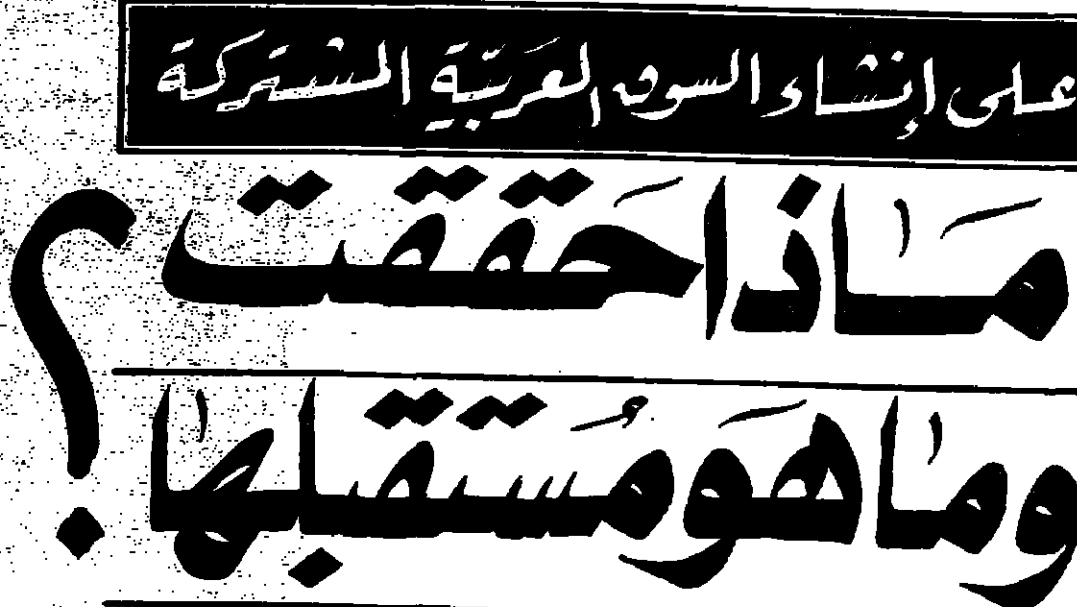 على إنشاء السوق العربية المشتركة
ماذا حققت
وما هو مستقبلها؟